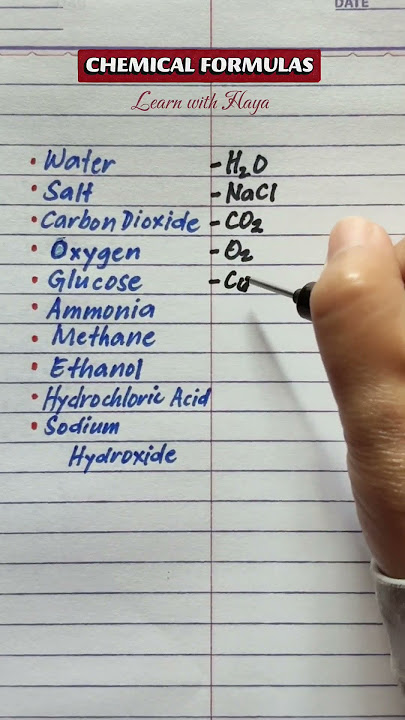 DATE
CHEMICAL FORMULAS
Learn with Haya
• Water - H₂O
• Salt - NaCl
• Carbon Dioxide - CO₂
• Oxygen - O₂
• Glucose - C
• Ammonia
• Methane
• Ethanol
• Hydrochloric Acid
• Sodium
Hydroxide